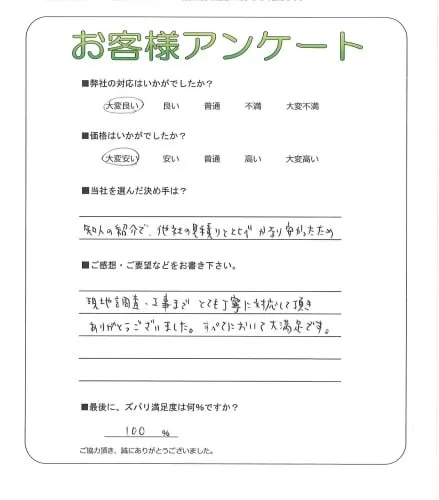 お客様アンケート
■弊社の対応はいかがでしたか？
大変良い 良い 普通 不満 大変不満
■価格はいかがでしたか？
大変安い 安い 普通 高い 大変高い
■当社を選んだ決め手は？
知人の紹介で、他社の見積りとくらべ かなり安かったため
■ご感想・ご要望などをお書き下さい。
現地調査・工事まで とても丁寧に対応して頂き
ありがとうございました。すべてにおいて大満足です。
■最後に、ズバリ満足度は何%ですか？
100 %
ご協力頂き、誠にありがとうございました。